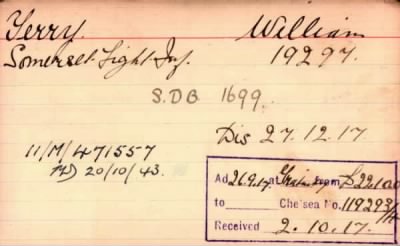 Terry. William
Somerset Light Inf. 19297.
S.D.B. 1699.
Dis 27.12.17.
11/M/471557
20/10/43.
Ad 26.9.17 at from
to Chelsea No. 119293/
Received 2.10.17.